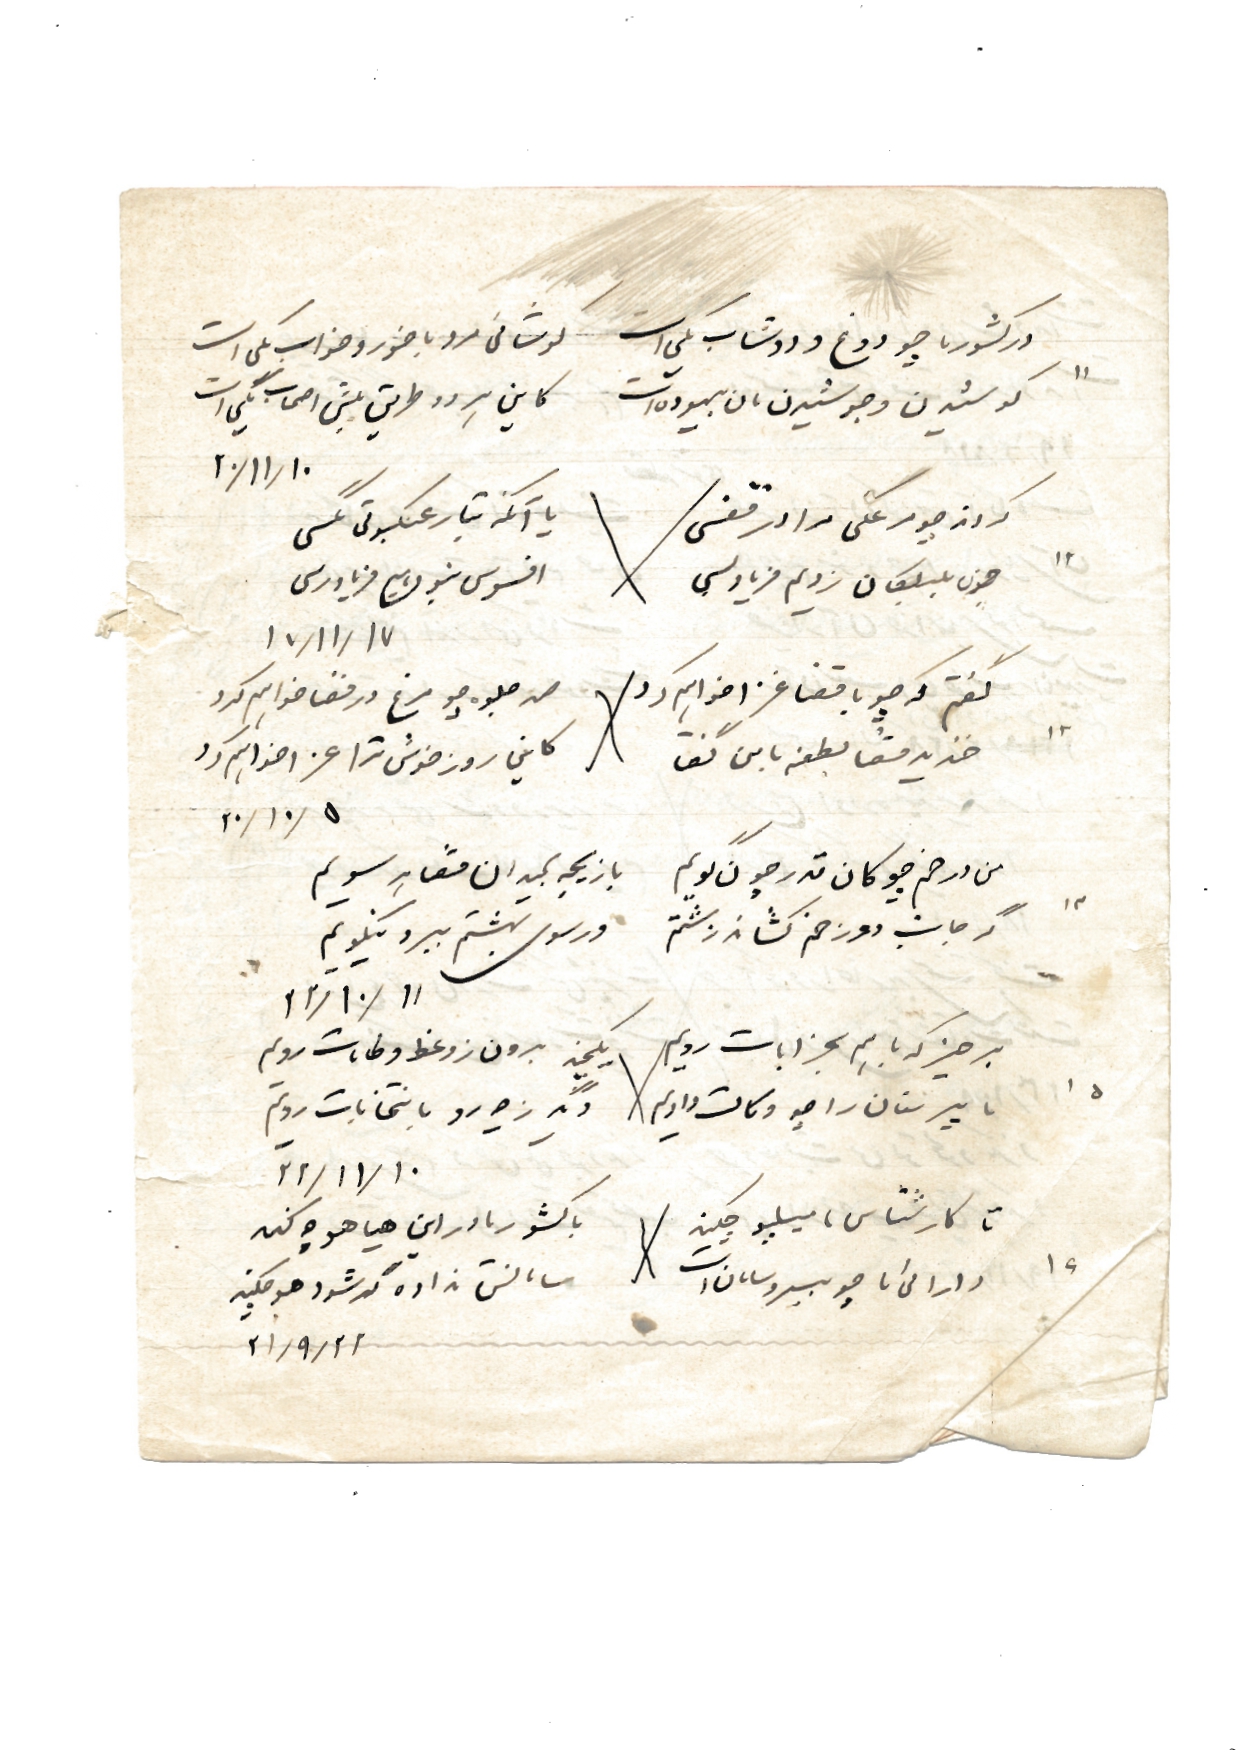 در کشور ما چو دوغ و دوشاب یکی است کوشائی مرد با خور و خواب یکی است
۱۱
کوشیدن و جوشیدن مان بیهوده است کاین هر دو طریق پیش اصحاب یکی است
۲۰/۱۱/۱۰
کردند چو مرغکی مرا در قفسی یا آنکه بتار عنکبوتی مگسی
۱۲
چون بلبلکان زدیم فریاد بسی افسوس نبود هیچ فریادرسی
۱۷/۱۱/۱۷
گفتم که چو با قضا غزا خواهم کرد صد جلوه چو مرغ در فضا خواهم کرد
۱۳
خندید قضا بطعنه با من گفتا کاین روز خوش ترا عزا خواهم کرد
۲۰/۱۰/۵
من در خم چوگان قدر چون گویم بازیچه بمیدان قضا هر سویم
۱۴
گر جانب دوزخم کشاند زشتم ور سوی بهشتم ببرد نیکویم
۲۲/۱۰/۱۱
برخیز که با هم بخرابات رویم یکچند برون ز وعظ و طامات رویم
۱۵
ما پیر مغان را چو وکالت دادیم دیگر ز چه رو بانتخابات رویم
۲۲/۱۱/۱۰
تا کارشناس ما میلسپو چکند با کشور ما در این هیاهو چه کند
۱۶
دارائی ما چو بی‌سر و سامان است سامانش نداده گر شود هو چکند
۲۱/۹/۲۲